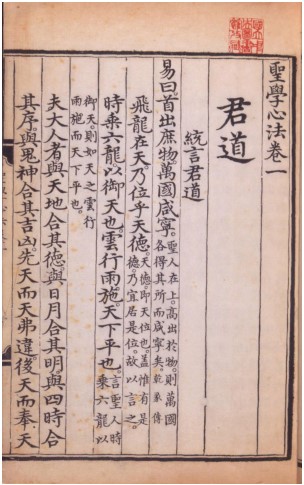 聖學心法卷一
君道
統言君道
易曰。首出庶物。萬國咸寧。
聖人在上。高出於物。則萬國
各得其所而咸寧矣。乾彖傳
飛龍在天。乃位乎天德。
天德。即天位也。蓋惟有是
德。乃宜居是位。故以言之。
時乘六龍以御天也。雲行雨施。天下平也。
言聖人時
乘六龍以
御天。則如天之雲行
雨施而天下平也。
夫大人者與天地合其德。與日月合其明。與四時合
其序。與鬼神合其吉凶。先天而天弗違。後天而奉天